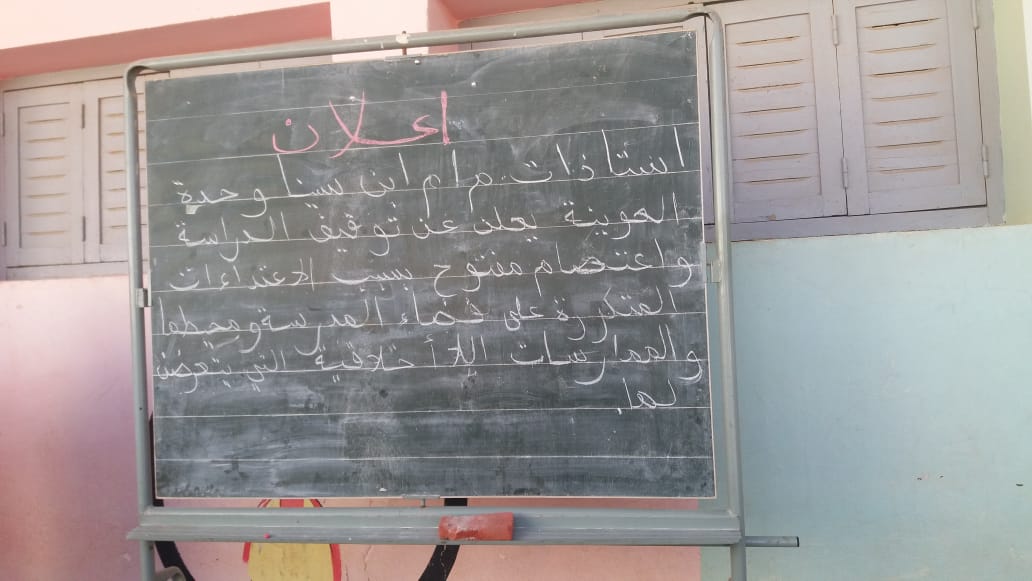 اعلان
استاذات م/م ابن سينا وحدة
العوينة يعلن عن توقيف الدراسة
واعتصام مفتوح بسبب الاعتداءات
المتكررة على فضاء المدرسة ومحيطها
والممارسات اللاأخلاقية التي يتعرضن
لها.